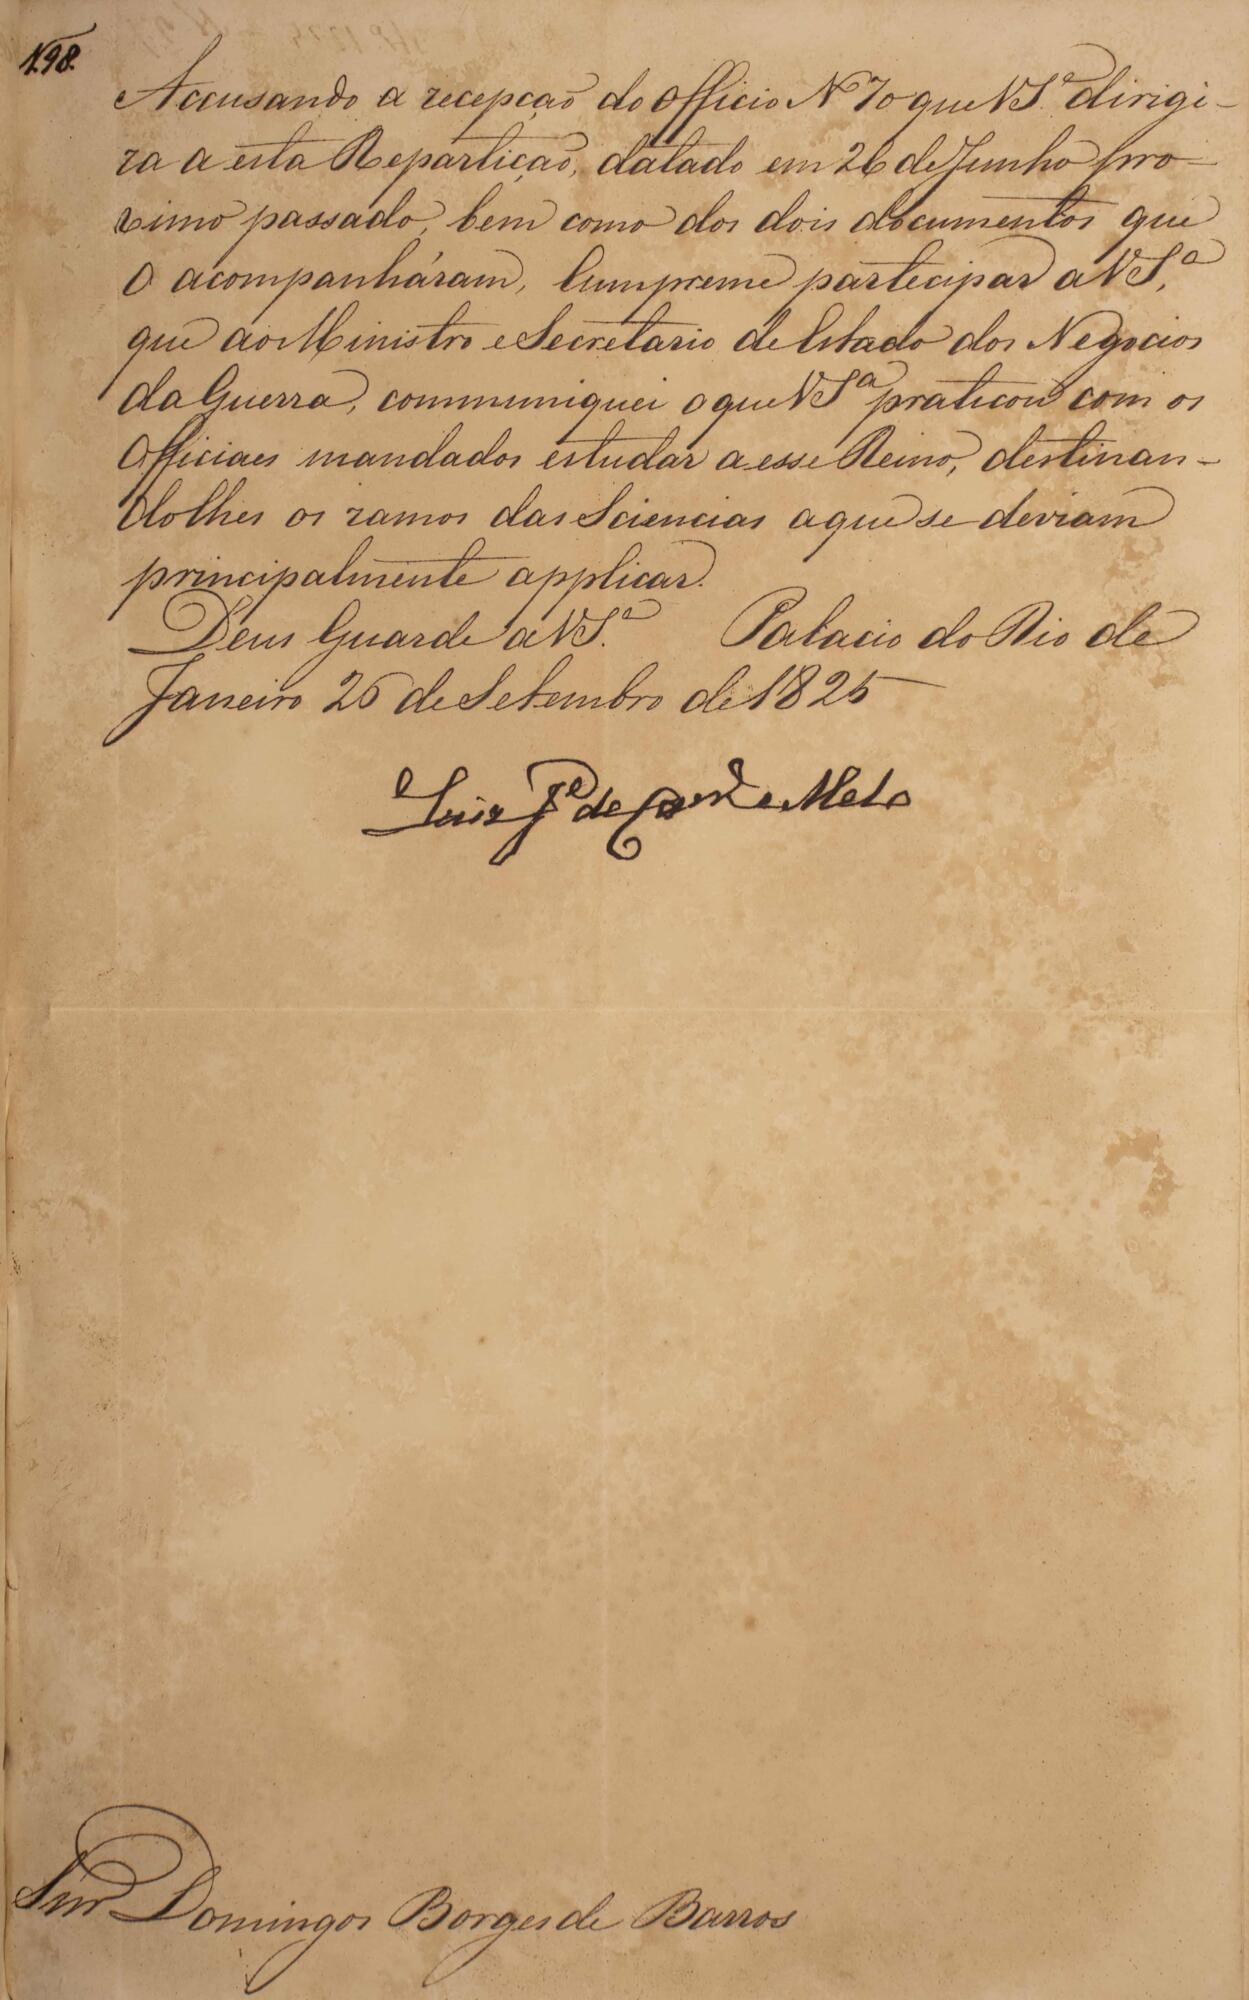 N.98.
Accusando a recepção do Officio Nº 70 que V S.ª dirigi-
ra a esta Repartição, datado em 26 de Junho pro-
ximo passado, bem como dos dois documentos que
o acompanháram, Cumpreme participar a V S.ª,
que ao Ministro e Secretario de Estado dos Negocios
da Guerra, communiquei o que V Sª praticou com os
Officiaes mandados estudar a esse Reino, destinan-
dolhes os ramos das Sciencias a que se deviam
principalmente applicar.
Deus Guarde a V S.ª Palacio do Rio de
Janeiro 26 de Setembro de 1825
Luiz Jº de Carvº e Mello
Snr Domingos Borges de Barros